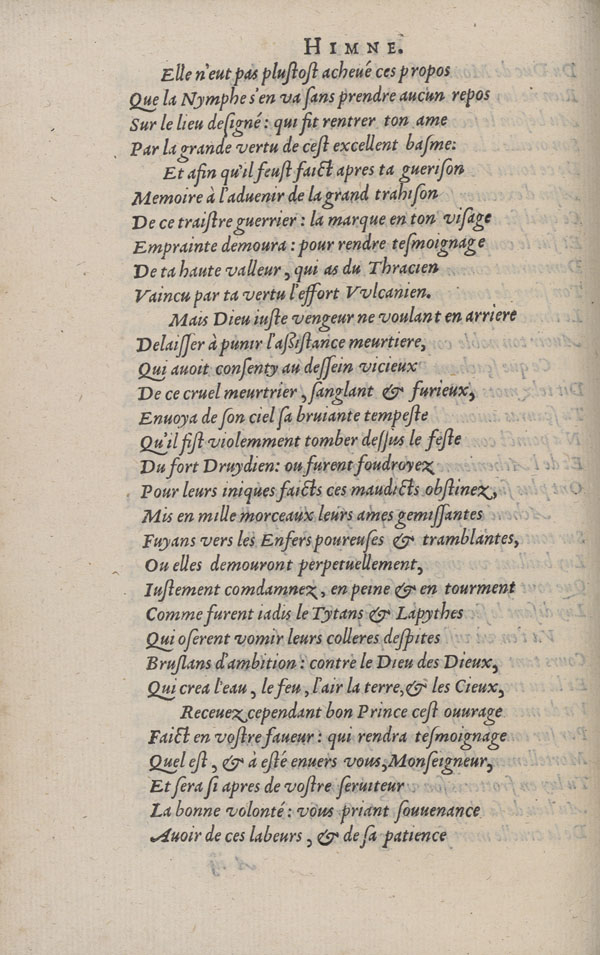 HIMNE.
Elle n'eut pas pluſtoſt acheué ces propos
Que la Nymphe s'en va ſans prendre aucun repos
Sur le lieu deſigné : qui fit rentrer ton ame
Par la grande vertu de ceſt excellent baſme:
Et afin qu'il feuſt faict apres ta gueriſon
Memoire à l'aduenir de la grand trahiſon
De ce traiſtre guerrier : la marque en ton viſage
Emprainte demoura : pour rendre teſmoignage
De ta haute valleur, qui as du Thracien
Vaincu par ta vertu l'effort Vvlcanien.
Mais Dieu iuſte vengeur ne voulant en arriere
Delaiſſer à punir l'aßiſtance meurtiere,
Qui auoit conſenty au deſſein vicieux
De ce cruel meurtrier, ſanglant & furieux,
Enuoya de ſon ciel ſa bruiante tempeſte
Qu'il fiſt violemment tomber deſſus le feſte
Du fort Druydien: ou furent foudroyez
Pour leurs iniques faicts ces maudicts obſtinez,
Mis en mille morceaux leurs ames gemiſſantes
Fuyans vers les Enfers poureuſes & tramblantes,
Ou elles demouront perpetuellement,
Iuſtement comdamnez, en peine & en tourment
Comme furent iadis le Tytans & Lapythes
Qui oſerent vomir leurs colleres deſpites
Bruſlans d'ambition : contre le Dieu des Dieux,
Qui crea l'eau, le feu, l'air la terre, & les Cieux,
Receuez cependant bon Prince ceſt ouurage
Faict en voſtre faueur : qui rendra teſmoignage
Quel eſt, & à eſté enuers vous, Monſeigneur,
Et ſera ſi apres de voſtre ſeruiteur
La bonne volonté : vous priant ſouuenance
Auoir de ces labeurs, & de ſa patience